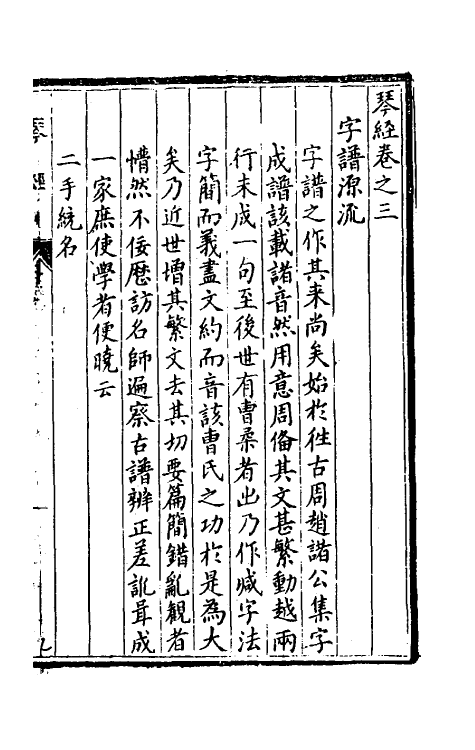 琴經卷之三
字譜源流
字譜之作其来尚矣始於徃古周趙諸公集字
成譜該載諸音然用意周偹其文甚繁動越兩
行未成一句至後世有曹柔者出乃作减字法
字簡而義盡文約而音該曹氏之功於是為大
矣乃近世增其繁文去其切要篇簡錯亂觀者
懵然不佞歴訪名師遍察古譜辨正差訛葺成
一家庶使學者便曉云
二手統名
琴經